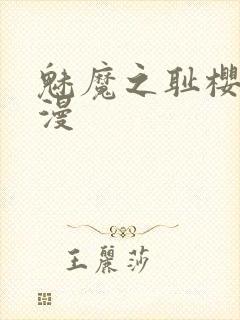 魅魔之耻樱
漫
王麗莎